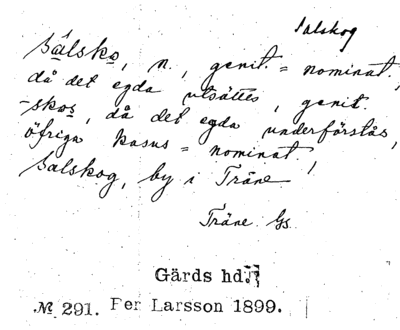 Salskog
Sälsko, n., genit. = nominat.,
då det egda utsättes, genit.
-skos, då det egda underförstås,
öfriga kasus = nominat.,
Salskog, by i Träne
Träne Gs.
Gärds hd.
№ 291. Per Larsson 1899.